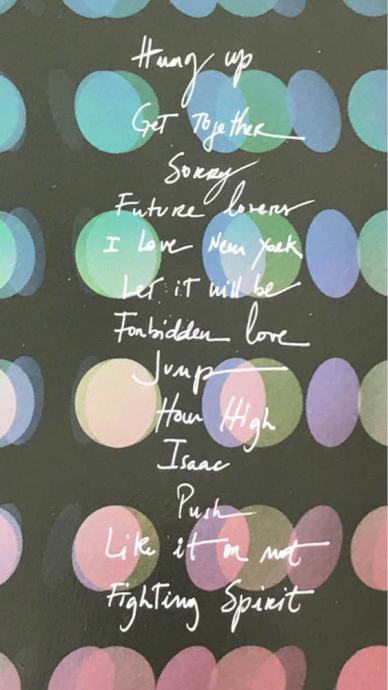 Hung up
Get Together
Sorry
Future lovers
I love New York
Let it will be
Forbidden love
Jump
How High
Isaac
Push
Like it or not
Fighting Spirit